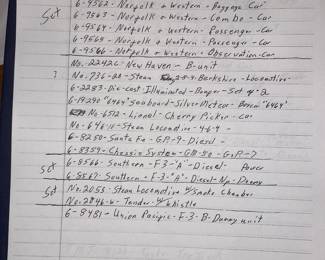 6-9562 - Norfolk & Western - Baggage Car
Set 6-9563 - Norfolk & Western - Combo - Car
6-9564 - Norfolk & Western - Passenger - Car
6-9565 - Norfolk & Western - Passenger - Car
6-9566 - Norfolk & Western - Observation - Car
No. 2242C - New Haven - B-unit
? No. 736- - Steam 2-8-4 Berkshire - Locomotive
6-2283 - Die-cast Illuminated - Bumper - Set of 2
6-19290 "6464" Seaboard - Silver Meteor - Boxcar "6464"
No - 6512 - Lionel - Cherry Picker - car
No - 646 - Steam Locomotive - 4-6-4 -
6-8250 - Santa Fe - GM-9 - Diesel -
6-8359 - Chessie System - GM-50 - GeP-7
Set 6-8566 - Southern - F-3 - "A" - Diesel - Power
6-8567 - Southern - F-3 - "A" - Diesel - Np - Dummy
Set No. 2055 - Steam Locomotive w/ Smoke Chamber
No. 2046-W - Tender w/ Whistle
6-8481 - Union Pacific - F-3 - B - Dummy unit